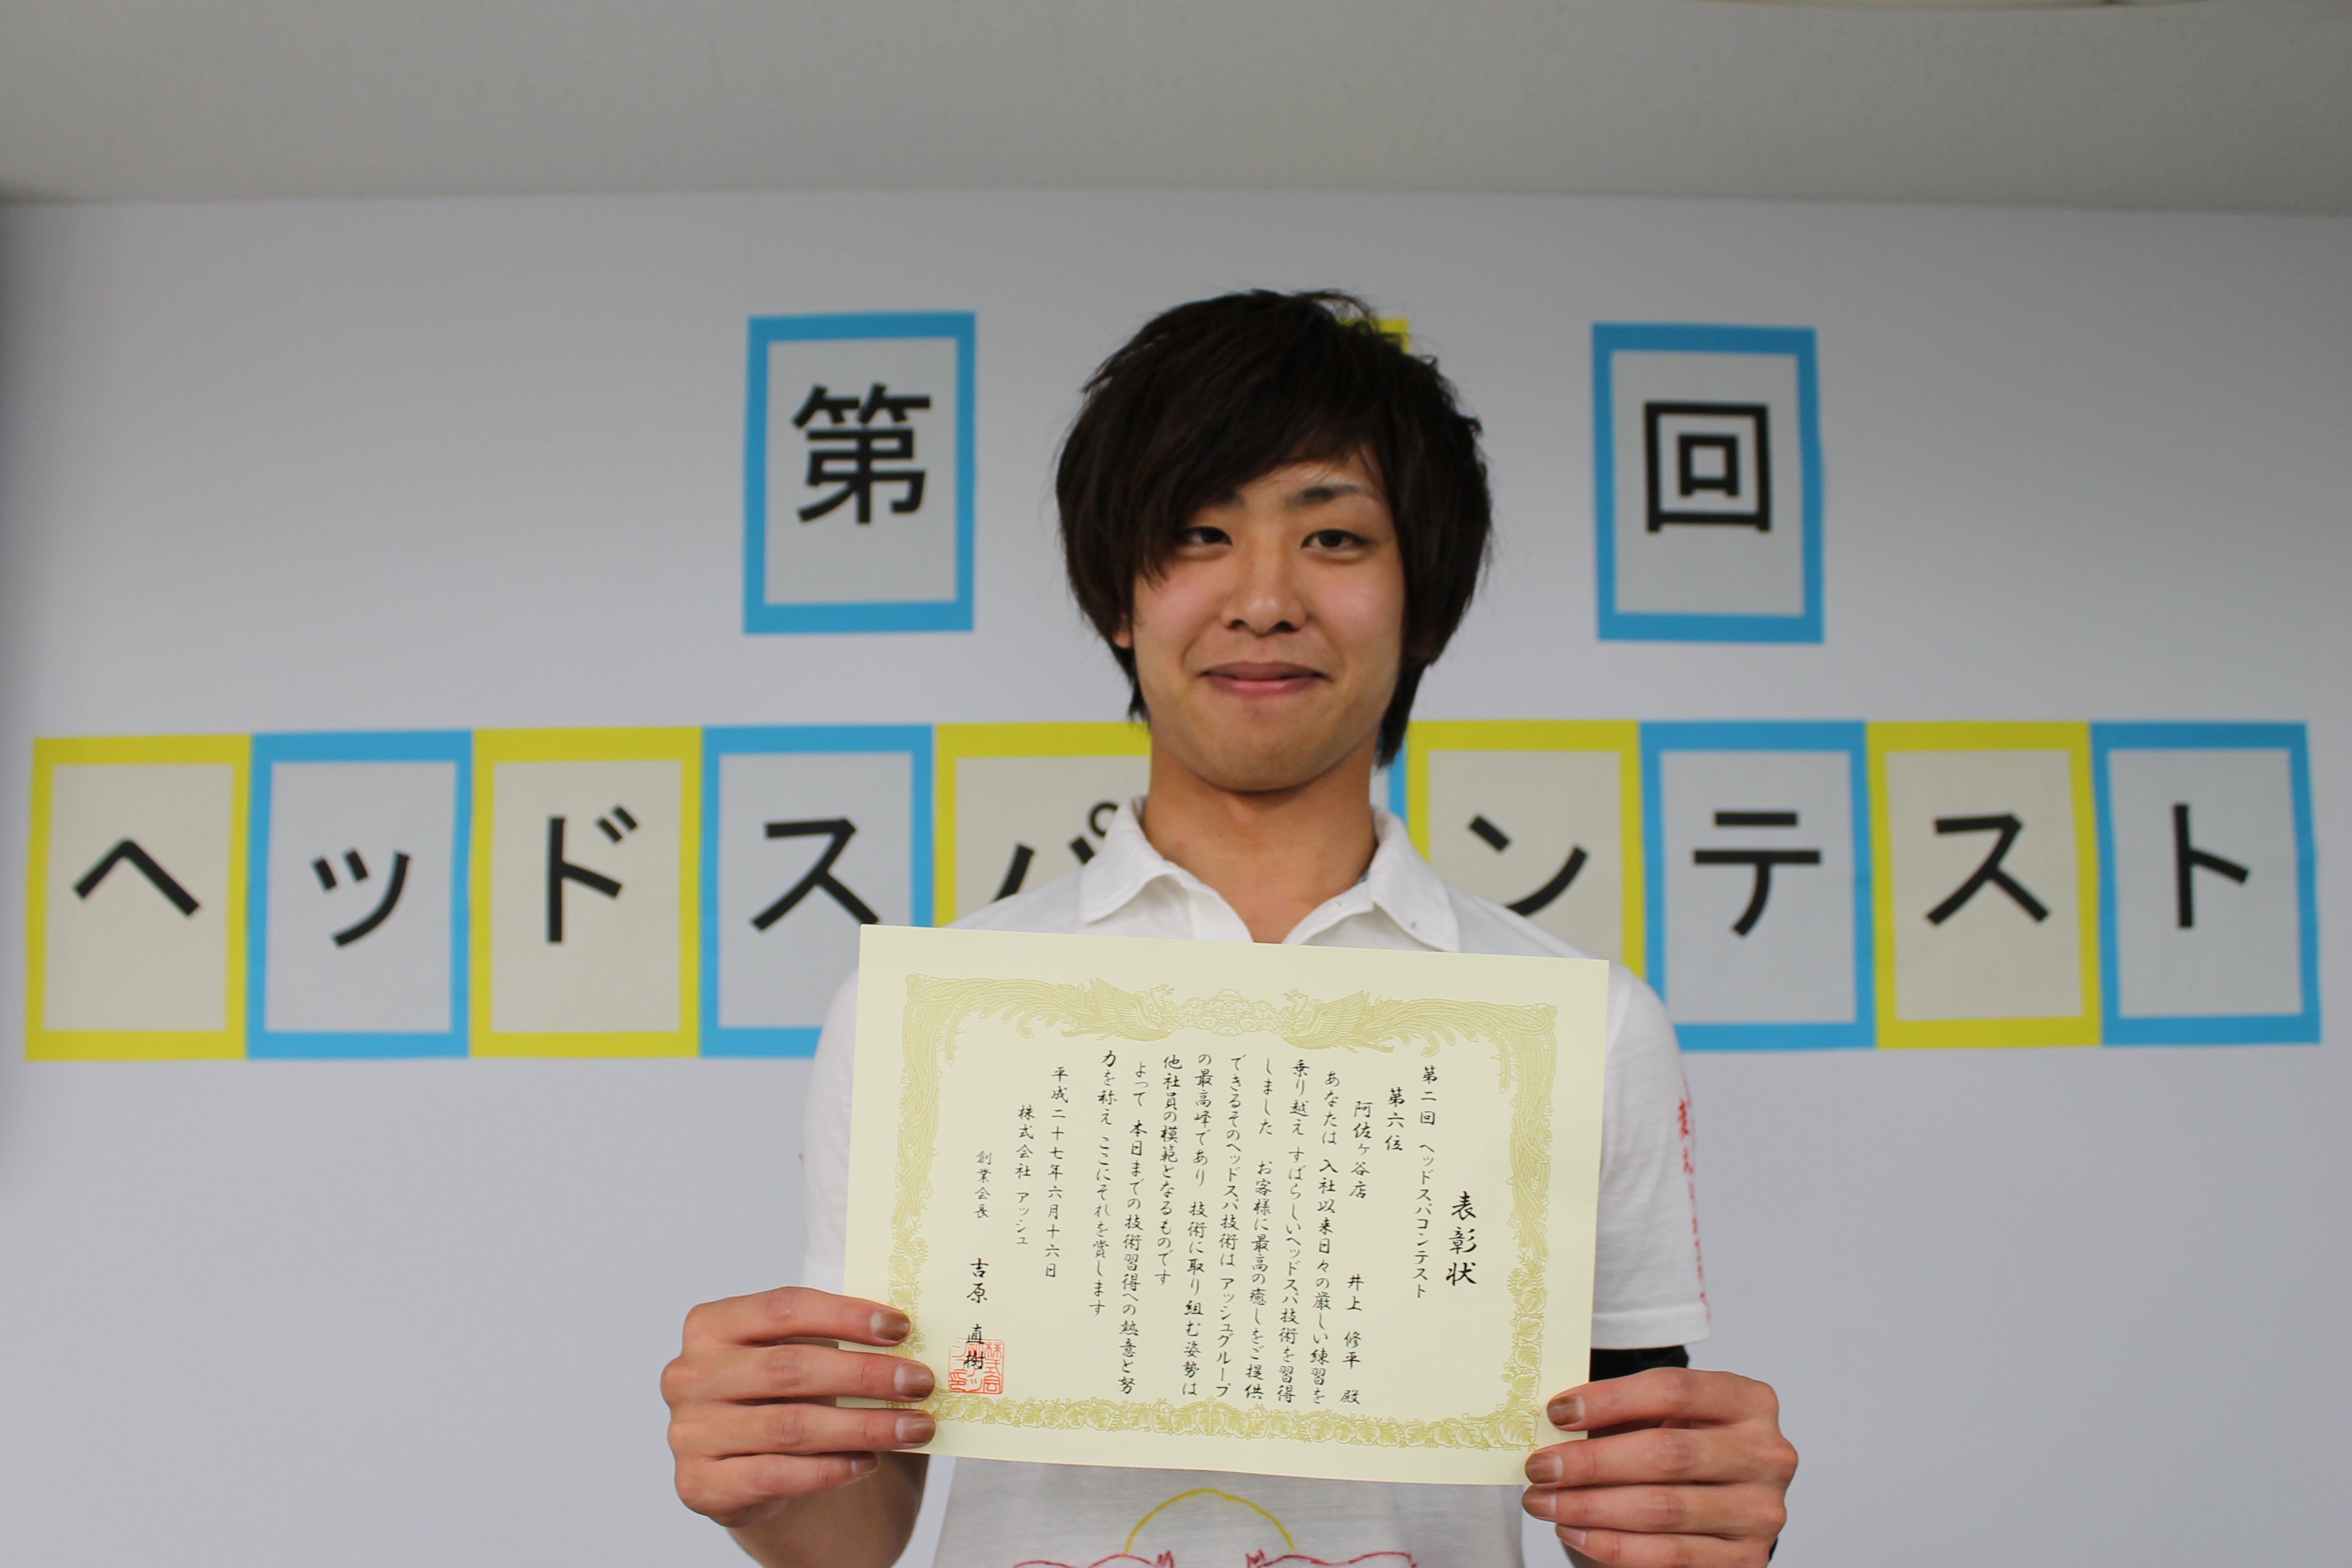 第 回
ヘッドスパ ンテスト
表彰状
第二回 ヘッドスパコンテスト
第六位
阿佐ヶ谷店 井上 修平 殿
あなたは 入社以来日々の厳しい練習を
乗り越え すばらしいヘッドスパ技術を習得
しました お客様に最高の癒しをご提供
できるそのヘッドスパ技術は アッシュグループ
の最高峰であり 技術に取り組む姿勢は
他社員の模範となるものです
よって 本日までの技術習得への熱意と努
力を称え ここにそれを賞します
平成二十七年六月十六日
株式会社 アッシュ
創業会長 吉原 直樹